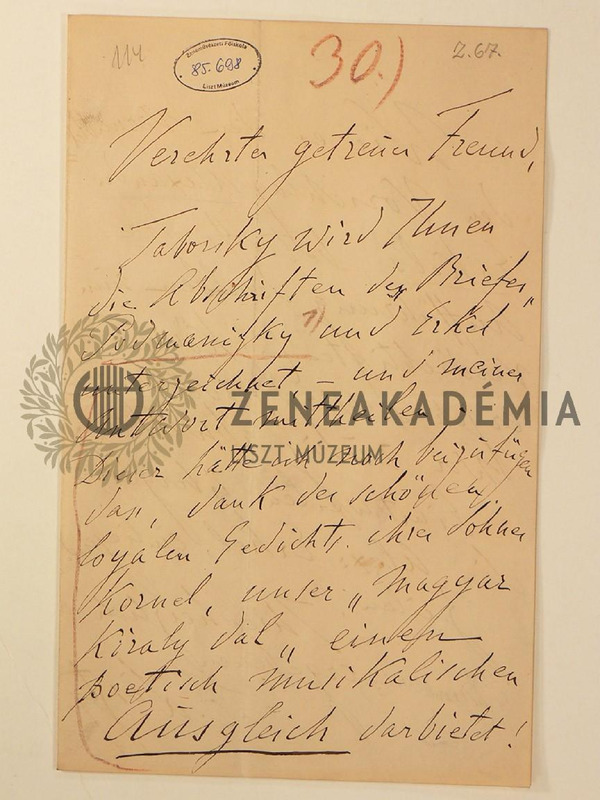 114
Zeneművészeti Főiskola
85.698
Liszt Múzeum
30.)
Z.67.
Verehrter getreuer Freund,
Taborsky wird Ihnen
die Abschriften des Briefes „
Podmanizky 1) und Erkel
unterzeichnet – und meiner
Antwort mittheilen.
Dieser hätte ich noch beizufügen
dass, dank der schönen,
loyalen Gedichts ihres Sohnes
Kornel, unser „Magyar
Király dal„ einen
poetisch musikalischen
Ausgleich darbietet!
ZENEAKADÉMIA
LISZT MÚZEUM